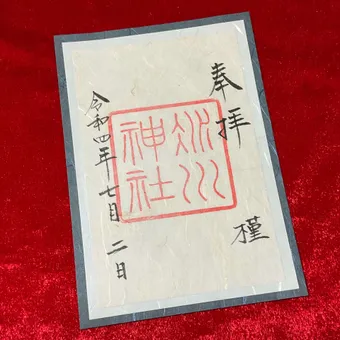 奉拝
槿
冰川
神社
令和四年七月二日